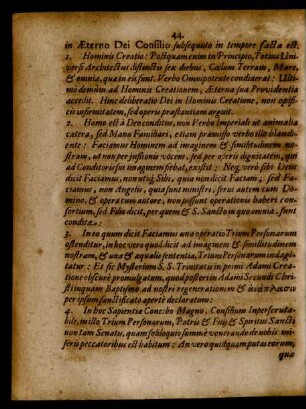 44.
in Æterno Dei Consilio subsequuto in tempore facta est.
1. Hominis Creatio: Postquam enim in Principio, Totius Uni-
versi Architectus distinctis sex diebus, Cælum Terram, Mare,
& omnia, quæ in eis sunt. Verbo Omnipotente condiderat: Ulti-
mo demum ad Hominis Creationem, Æterna sua Providentia
accedit. Hinc deliberatio Dei in Hominis Creatione, non opifi-
cis infirmitatem, sed operis præstantiam arguit.
2. Homo est à Deo conditus, non Verbo Imperiali ut animalia
cætera, sed Manu Familiari, etiam præmisso verbo illo blandi-
ente: Faciamus Hominem ad imaginem & similitudinem no-
stram, ut non per jussionis vocem, sed per operis dignitatem, qui
ad Conditoris sui imaginem fiebat, exsistat: Neq; verò sibi Deus
dicit Faciamus, non utiq; Sibi, quia non dicit Faciam; sed Fa-
ciamus, non Angelis, quia sunt ministri, servi autem cum Do-
mino, & opera cum autore, non possunt operationis haberi con-
sortium, sed Filio dicit, per quem & S. Sancto in quo omnia, sunt
condita.
3. In eo quum dicit Faciamus una operatio Trium Personarum
ostenditur, in hoc vero quod dicit ad imaginem & simillitudinem
nostram, & una & æqualis sententia, Trium Personarum indagi-
tatur: Et sic Mysterium S.S. Trinitatis in primi Adami Crea-
tione obscurè promulgatum, quod posteris in Adami Secundi Chri-
sti inquam Baptismo ad nostri regenerationem & ἀνάπλασιν
per ipsum sanctificato apertè declaratum:
4. In hoc Sapientia Concibo Magno, Consilium Imperscruta-
bile, in illo Trium Personarum, Patris & Filij & Spiritus Sancti
non tam Senatu, quam soliloquio summè venerando de nobis mi-
seris peccatoribus est habitum: An vero quidquam putas eorum,
quæ